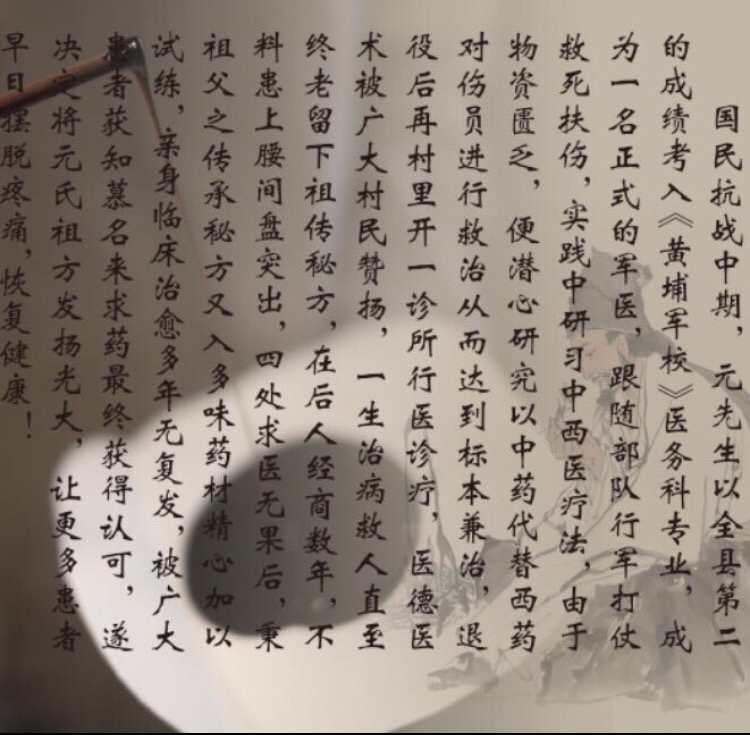 国民抗战中期，元先生以全县第二
的成绩考入《黄埔军校》医务科专业，成
为一名正式的军医，跟随部队行军打仗
救死扶伤，实践中研习中西医疗法，由于
物资匮乏，便潜心研究以中药代替西药
对伤员进行救治从而达到标本兼治，退
役后再村里开一诊所行医诊疗，医德医
术被广大村民赞扬，一生治病救人直至
终老留下祖传秘方，在后人经商数年，不
料患上腰间盘突出，四处求医无果后，秉
祖父之传承秘方又入多味药材精心加以
试练，亲身临床治愈多年无复发，被广大
患者获知慕名来求药最终获得认可，遂
决定将元氏祖方发扬光大，让更多患者
早日摆脱疼痛，恢复健康！